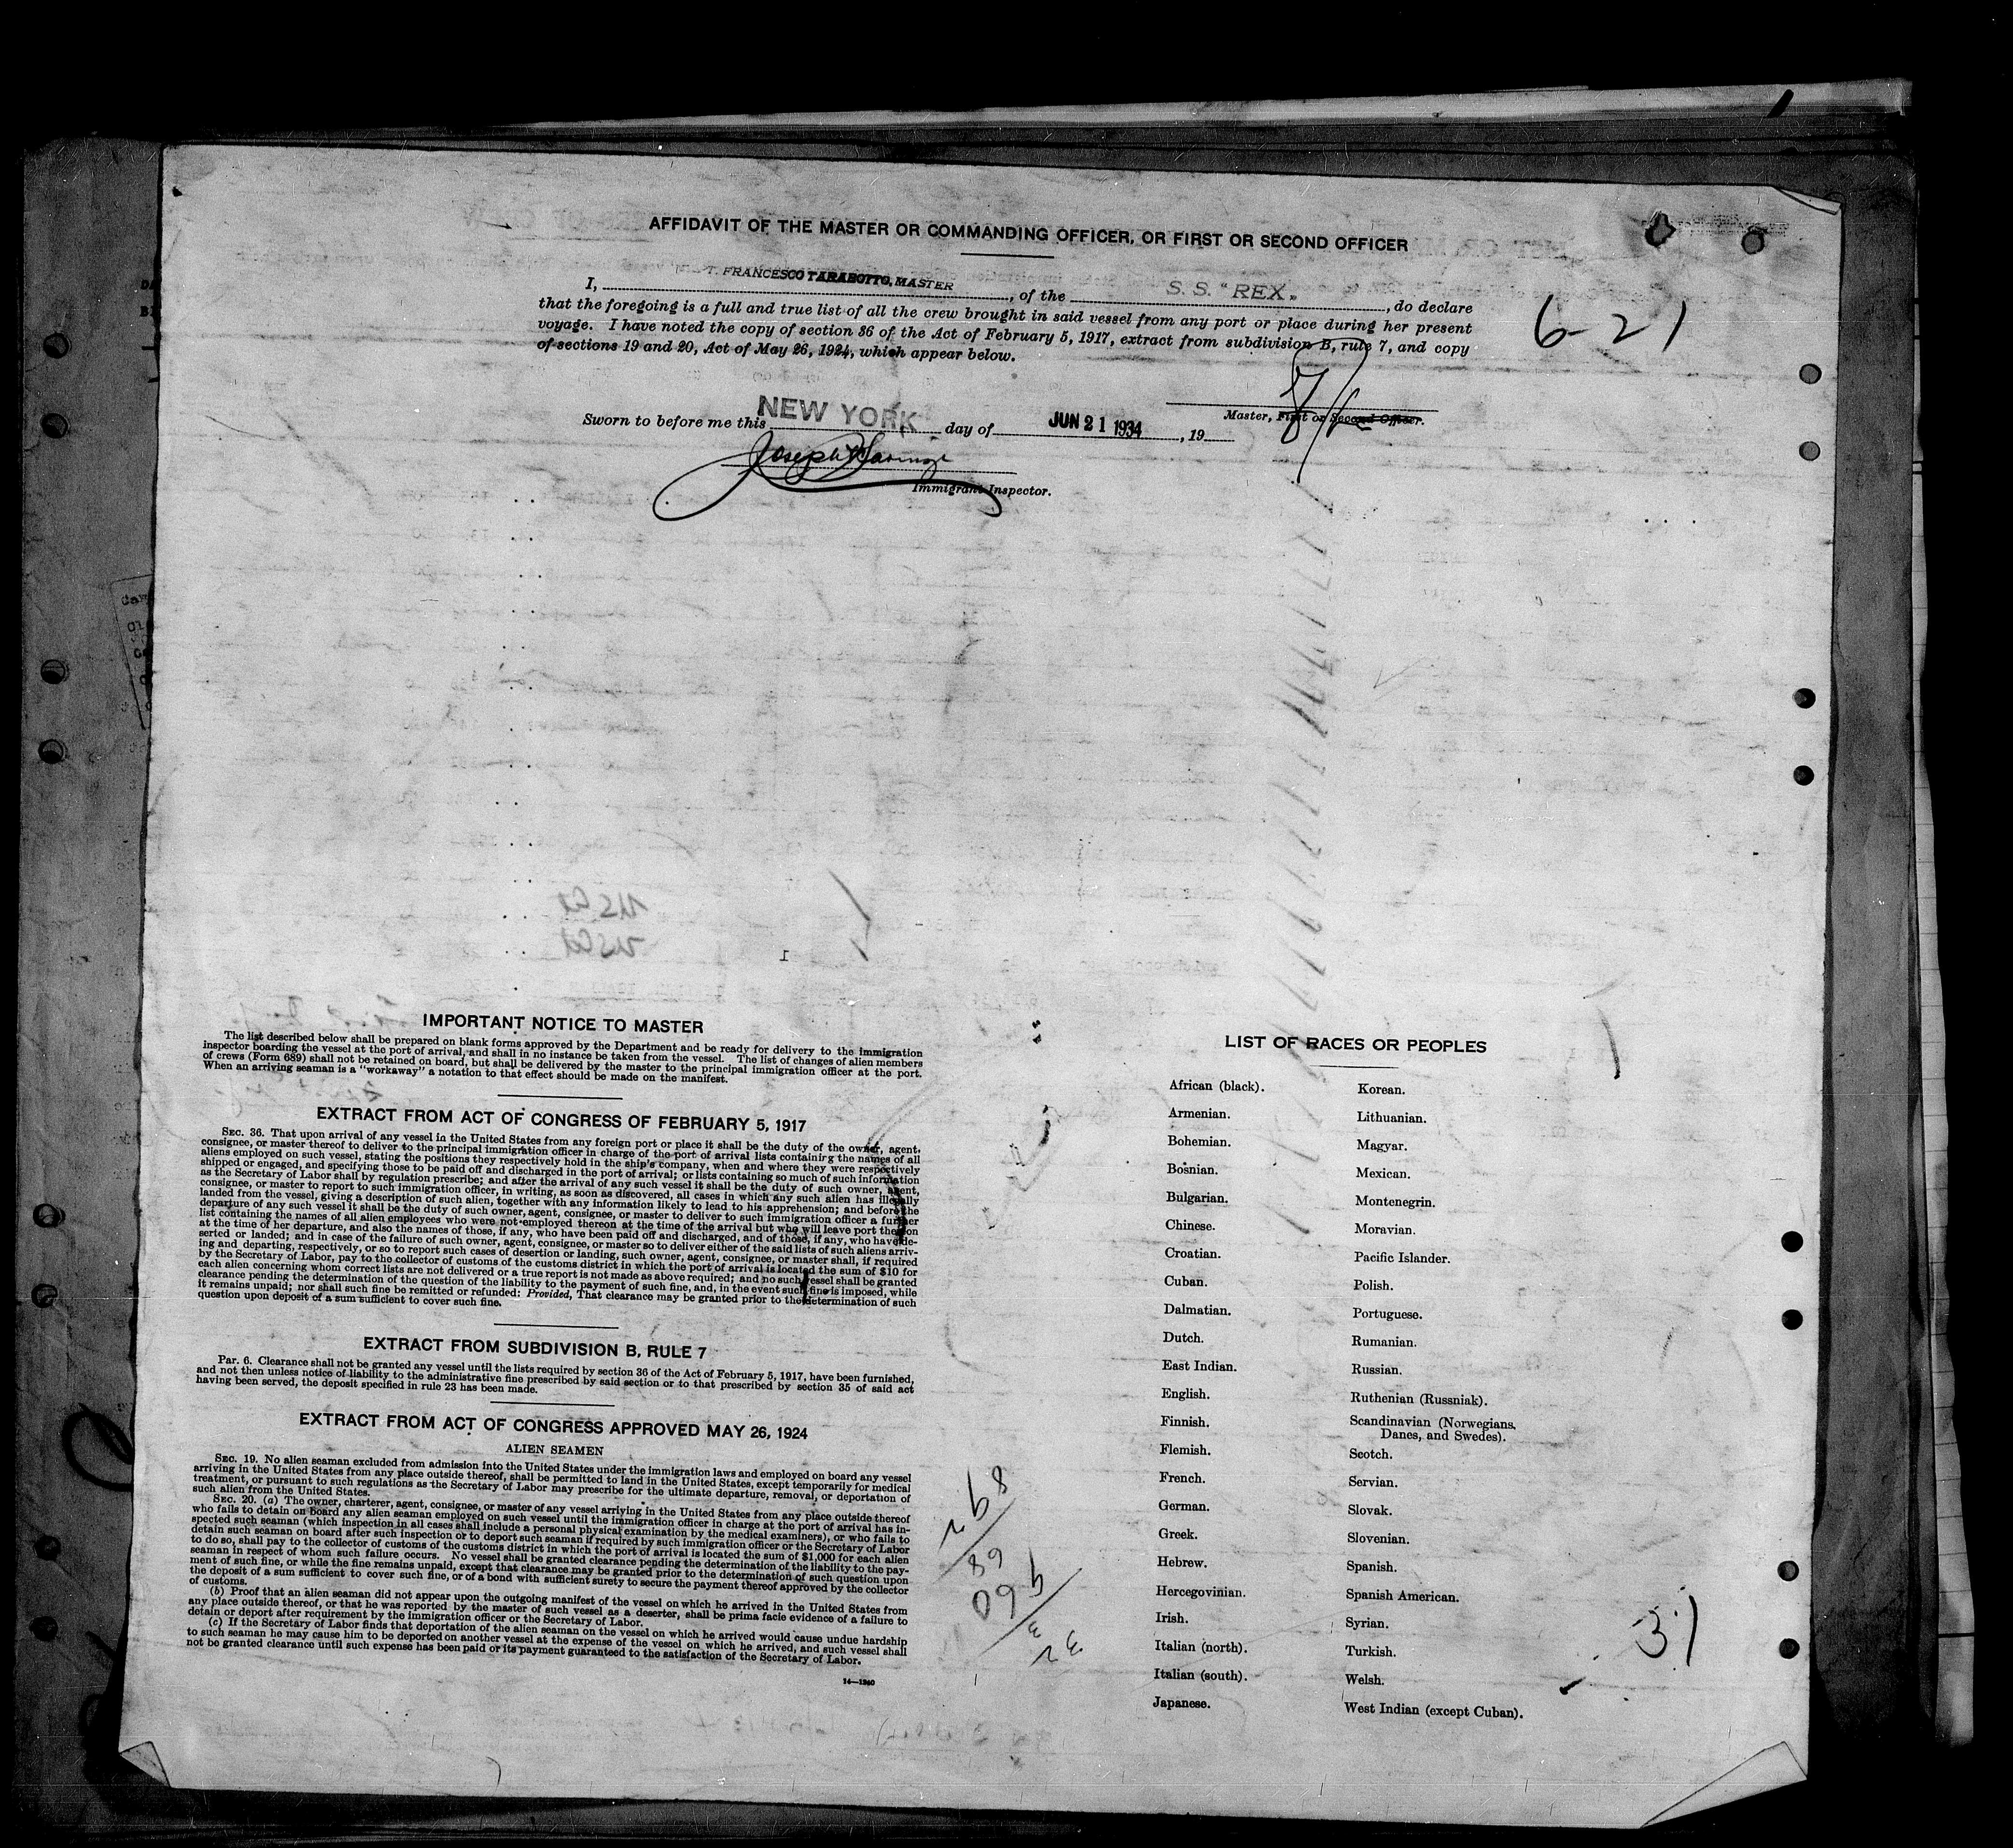 AFFIDAVIT OF THE MASTER OR COMMANDING OFFICER, OR FIRST OR SECOND OFFICER
I, T. FRANCESCO TARABOTTO, MASTER, of the S. S. "REX", do declare
that the foregoing is a full and true list of all the crew brought in said vessel from any port or place during her present
voyage. I have noted the copy of section 36 of the Act of February 5, 1917, extract from subdivision B, rule 7, and copy
of sections 19 and 20, Act of May 26, 1924, which appear below.
6-21
Master, First or Second Officer.
Sworn to before me this NEW YORK day of JUN 21 1934, 19
Joseph
Immigrant Inspector.
IMPORTANT NOTICE TO MASTER
The list described below shall be prepared on blank forms approved by the Department and be ready for delivery to the immigration
inspector boarding the vessel at the port of arrival, and shall in no instance be taken from the vessel. The list of changes of alien members
of crews (Form 689) shall not be retained on board, but shall be delivered by the master to the principal immigration officer at the port.
When an arriving seaman is a "workaway" a notation to that effect should be made on the manifest.
EXTRACT FROM ACT OF CONGRESS OF FEBRUARY 5, 1917
SEC. 36. That upon arrival of any vessel in the United States from any foreign port or place it shall be the duty of the owner, agent,
consignee, or master thereof to deliver to the principal immigration officer in charge of the port of arrival lists containing the names of all
aliens employed on such vessel, stating the positions they respectively hold in the ship's company, when and where they were respectively
shipped or engaged, and specifying those to be paid off and discharged in the port of arrival; or lists containing so much of such information
as the Secretary of Labor shall by regulation prescribe; and after the arrival of any such vessel it shall be the duty of such owner, agent,
consignee, or master to report to such immigration officer, in writing, as soon as discovered, all cases in which any such alien has illegally
landed from the vessel, giving a description of such alien, together with any information likely to lead to his apprehension; and before the
departure of any such vessel it shall be the duty of such owner, agent, consignee, or master to deliver to such immigration officer a further
list containing the names of all alien employees who were not employed thereon at the time of the arrival but who will leave port thereon
at the time of her departure, and also the names of those, if any, who have been paid off and discharged, and of those, if any, who have de-
serted or landed; and in case of the failure of such owner, agent, consignee, or master so to deliver either of the said lists of such aliens arriv-
ing and departing, respectively, or so to report such cases of desertion or landing, such owner, agent, consignee, or master shall, if required
by the Secretary of Labor, pay to the collector of customs of the customs district in which the port of arrival is located the sum of $10 for
each alien concerning whom correct lists are not delivered or a true report is not made as above required; and no such vessel shall be granted
clearance pending the determination of the question of the liability to the payment of such fine, and, in the event such fine is imposed, while
it remains unpaid; nor shall such fine be remitted or refunded: Provided, That clearance may be granted prior to the determination of such
question upon deposit of a sum sufficient to cover such fine.
EXTRACT FROM SUBDIVISION B, RULE 7
Par. 6. Clearance shall not be granted any vessel until the lists required by section 36 of the Act of February 5, 1917, have been furnished,
and not then unless notice of liability to the administrative fine prescribed by said section or to that prescribed by section 35 of said act
having been served, the deposit specified in rule 23 has been made.
EXTRACT FROM ACT OF CONGRESS APPROVED MAY 26, 1924
ALIEN SEAMEN
SEC. 19. No alien seaman excluded from admission into the United States under the immigration laws and employed on board any vessel
arriving in the United States from any place outside thereof, shall be permitted to land in the United States, except temporarily for medical
treatment, or pursuant to such regulations as the Secretary of Labor may prescribe for the ultimate departure, removal, or deportation of
such alien from the United States.
SEC. 20. (a) The owner, charterer, agent, consignee, or master of any vessel arriving in the United States from any place outside thereof
who fails to detain on board any alien seaman employed on such vessel until the immigration officer in charge at the port of arrival has in-
spected such seaman (which inspection in all cases shall include a personal physical examination by the medical examiners), or who fails to
detain such seaman on board after such inspection or to deport such seaman if required by such immigration officer or the Secretary of Labor
to do so, shall pay to the collector of customs of the customs district in which the port of arrival is located the sum of $1,000 for each alien
seaman in respect of whom such failure occurs. No vessel shall be granted clearance pending the determination of the liability to the pay-
ment of such fine, or while the fine remains unpaid, except that clearance may be granted prior to the determination of such question upon
the deposit of a sum sufficient to cover such fine, or of a bond with sufficient surety to secure the payment thereof approved by the collector
of customs.
(b) Proof that an alien seaman did not appear upon the outgoing manifest of the vessel on which he arrived in the United States from
any place outside thereof, or that he was reported by the master of such vessel as a deserter, shall be prima facie evidence of a failure to
detain or deport after requirement by the immigration officer or the Secretary of Labor.
(c) If the Secretary of Labor finds that deportation of the alien seaman on the vessel on which he arrived would cause undue hardship
to such seaman he may cause him to be deported on another vessel at the expense of the vessel on which he arrived, and such vessel shall
not be granted clearance until such expense has been paid or its payment guaranteed to the satisfaction of the Secretary of Labor.
14—1240
LIST OF RACES OR PEOPLES
African (black).
Armenian.
Bohemian.
Bosnian.
Bulgarian.
Chinese.
Croatian.
Cuban.
Dalmatian.
Dutch.
East Indian.
English.
Finnish.
Flemish.
French.
German.
Greek.
Hebrew.
Hercegovinian.
Irish.
Italian (north).
Italian (south).
Japanese.
Korean.
Lithuanian.
Magyar.
Mexican.
Montenegrin.
Moravian.
Pacific Islander.
Polish.
Portuguese.
Rumanian.
Russian.
Ruthenian (Russniak).
Scandinavian (Norwegians,
Danes, and Swedes).
Scotch.
Servian.
Slovak.
Slovenian.
Spanish.
Spanish American.
Syrian.
Turkish.
Welsh.
West Indian (except Cuban).
31